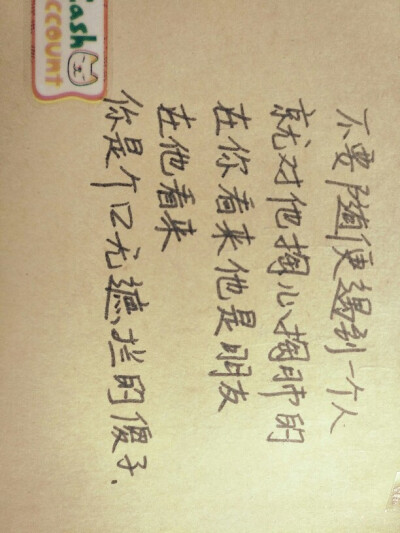 Cash
ACCOUNT
不要随便遇到一个人
就对他掏心掏肺的
在你看来他是朋友
在他看来
你是个口无遮拦的傻子.